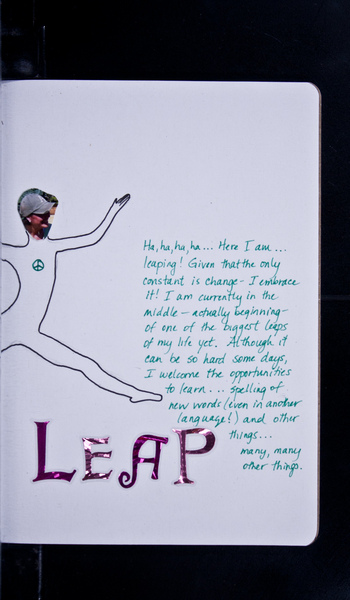 Ha, ha, ha, ha... Here I am...
leaping! Given that the only
constant is change - I embrace
It! I am currently in the
middle - actually beginning -
of one of the biggest leaps
of my life yet. Although it
can be so hard some days,
I welcome the opportunities
to learn... spelling of
new words (even in another
language!) and other
things...
many, many
other things.
LEAP